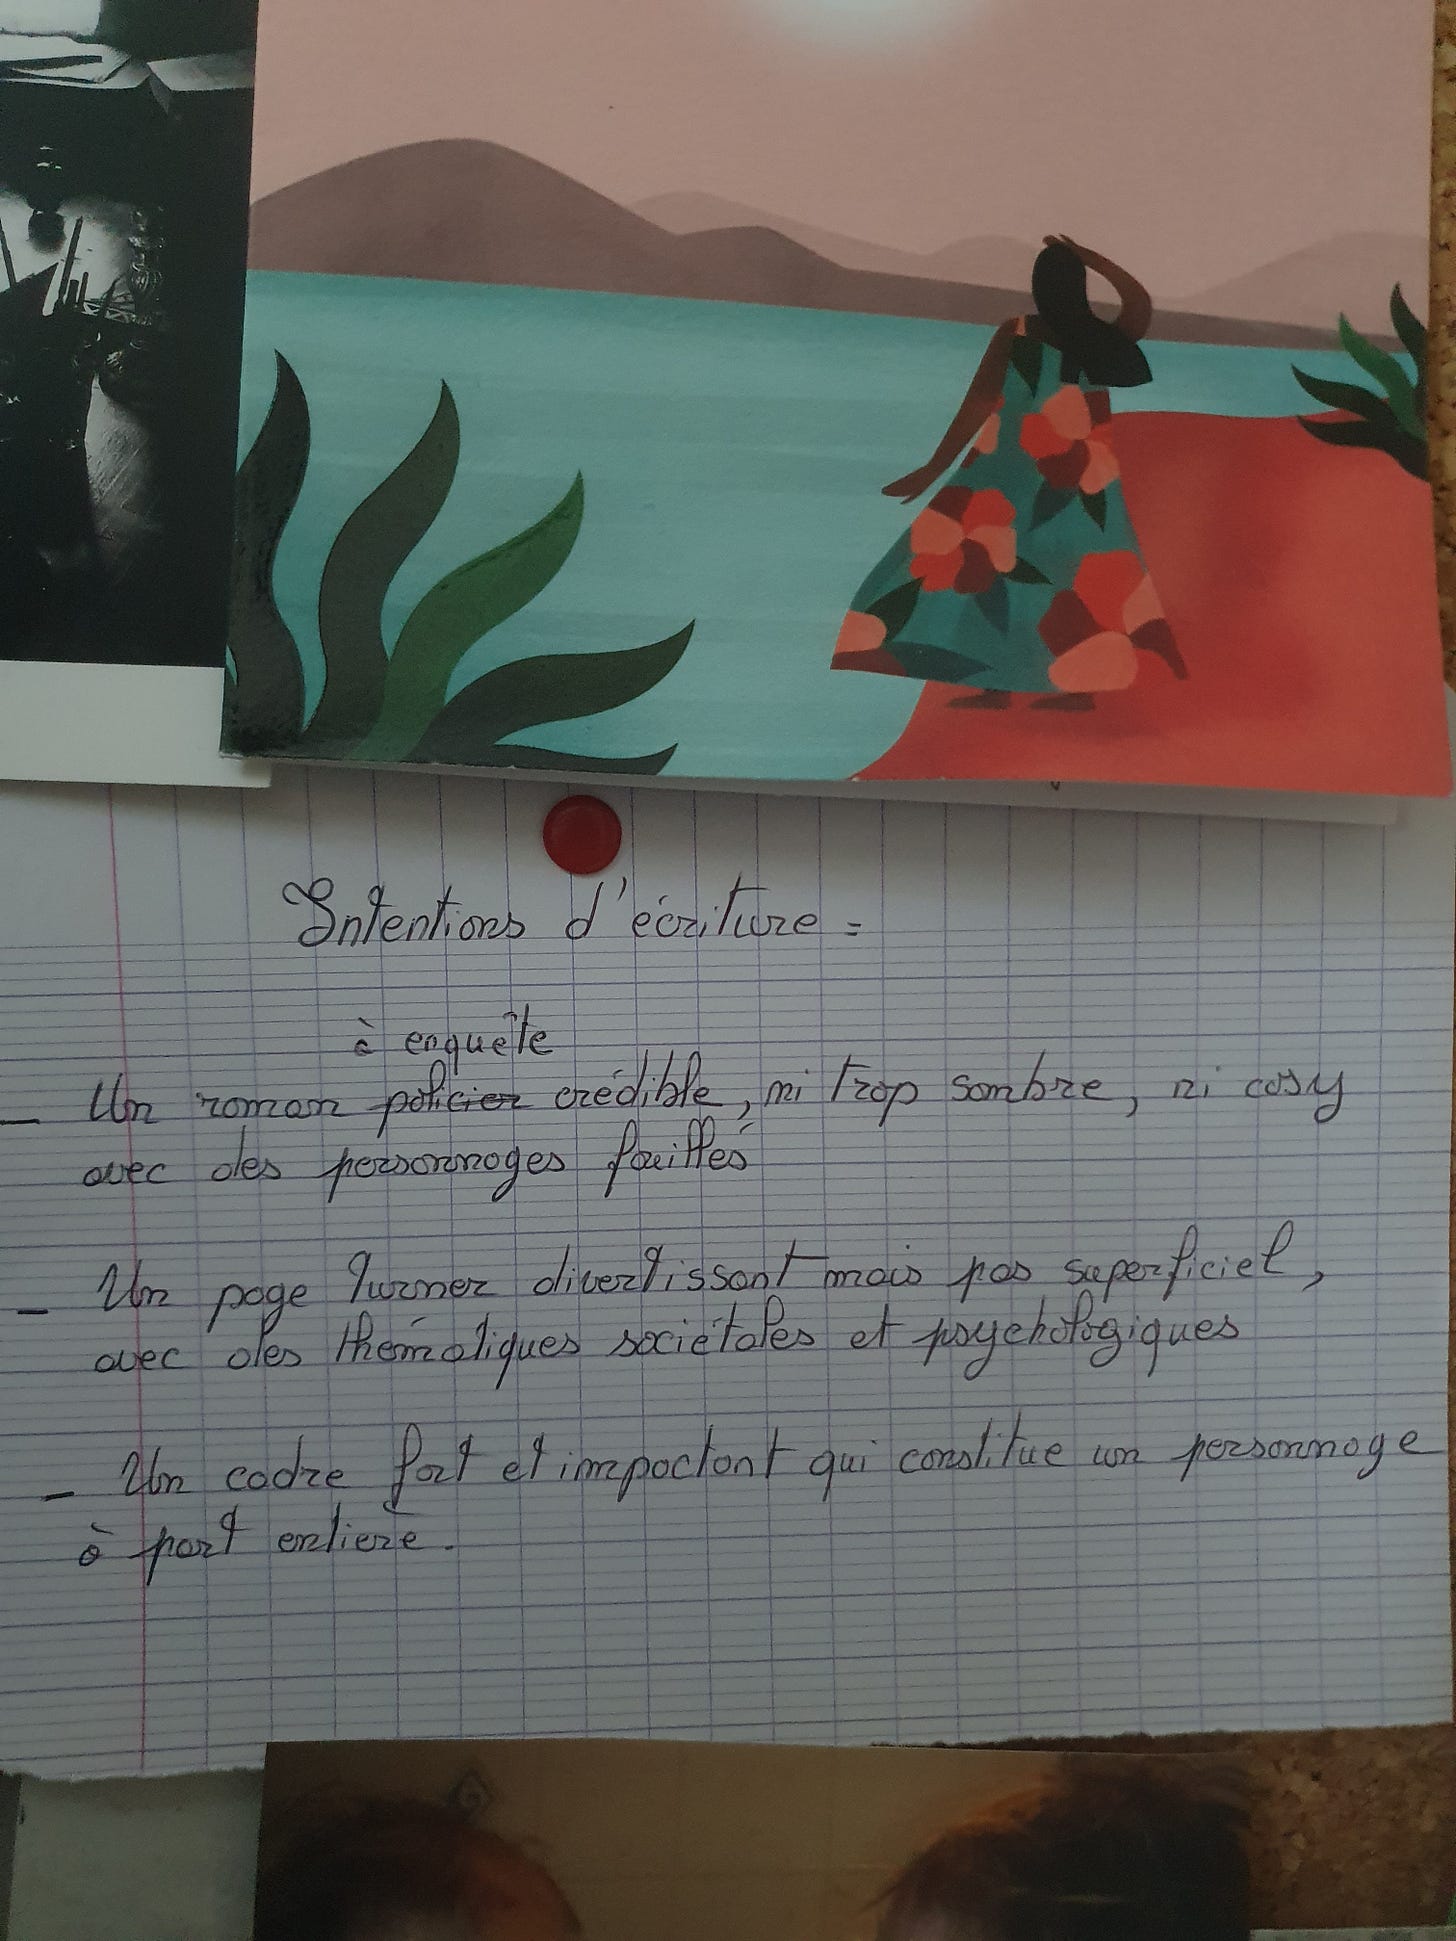 Intentions d'écriture =
à enquête
_ Un roman policier crédible, ni trop sombre, ni cosy
avec des personnages faillés
_ Un page turner divertissant mais pas superficiel,
avec des thématiques sociétales et psychologiques
_ Un cadre fort et impactant qui constitue un personnage
à part entière.